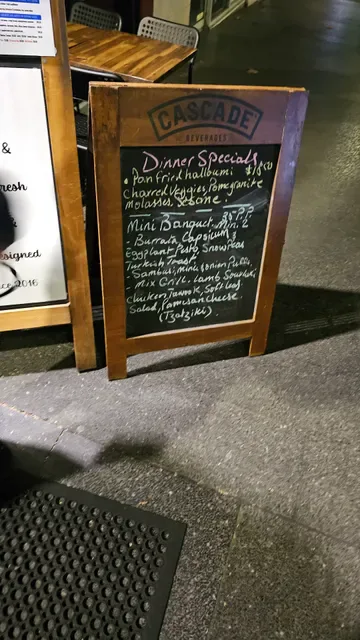 &
resh
signed
ce 2016
CASCADE
BEVERAGES
Dinner Specials
• Pan fried halloumi $18.50
Charred Veggies, Pomegranite
Molasses, Sesame.
Mini Banquet 35 P.P
Min. 2
- Burrata, Capsium &
Eggplant Pesto, Snow Peas
Turkish Toast.
- Sambusi, Mini onion Puffs,
- Mix Grill, Lamb Souvlaki,
Chicken Taouk, Soft Leaf
Salad, Parmesan Cheese.
(Tzatziki)